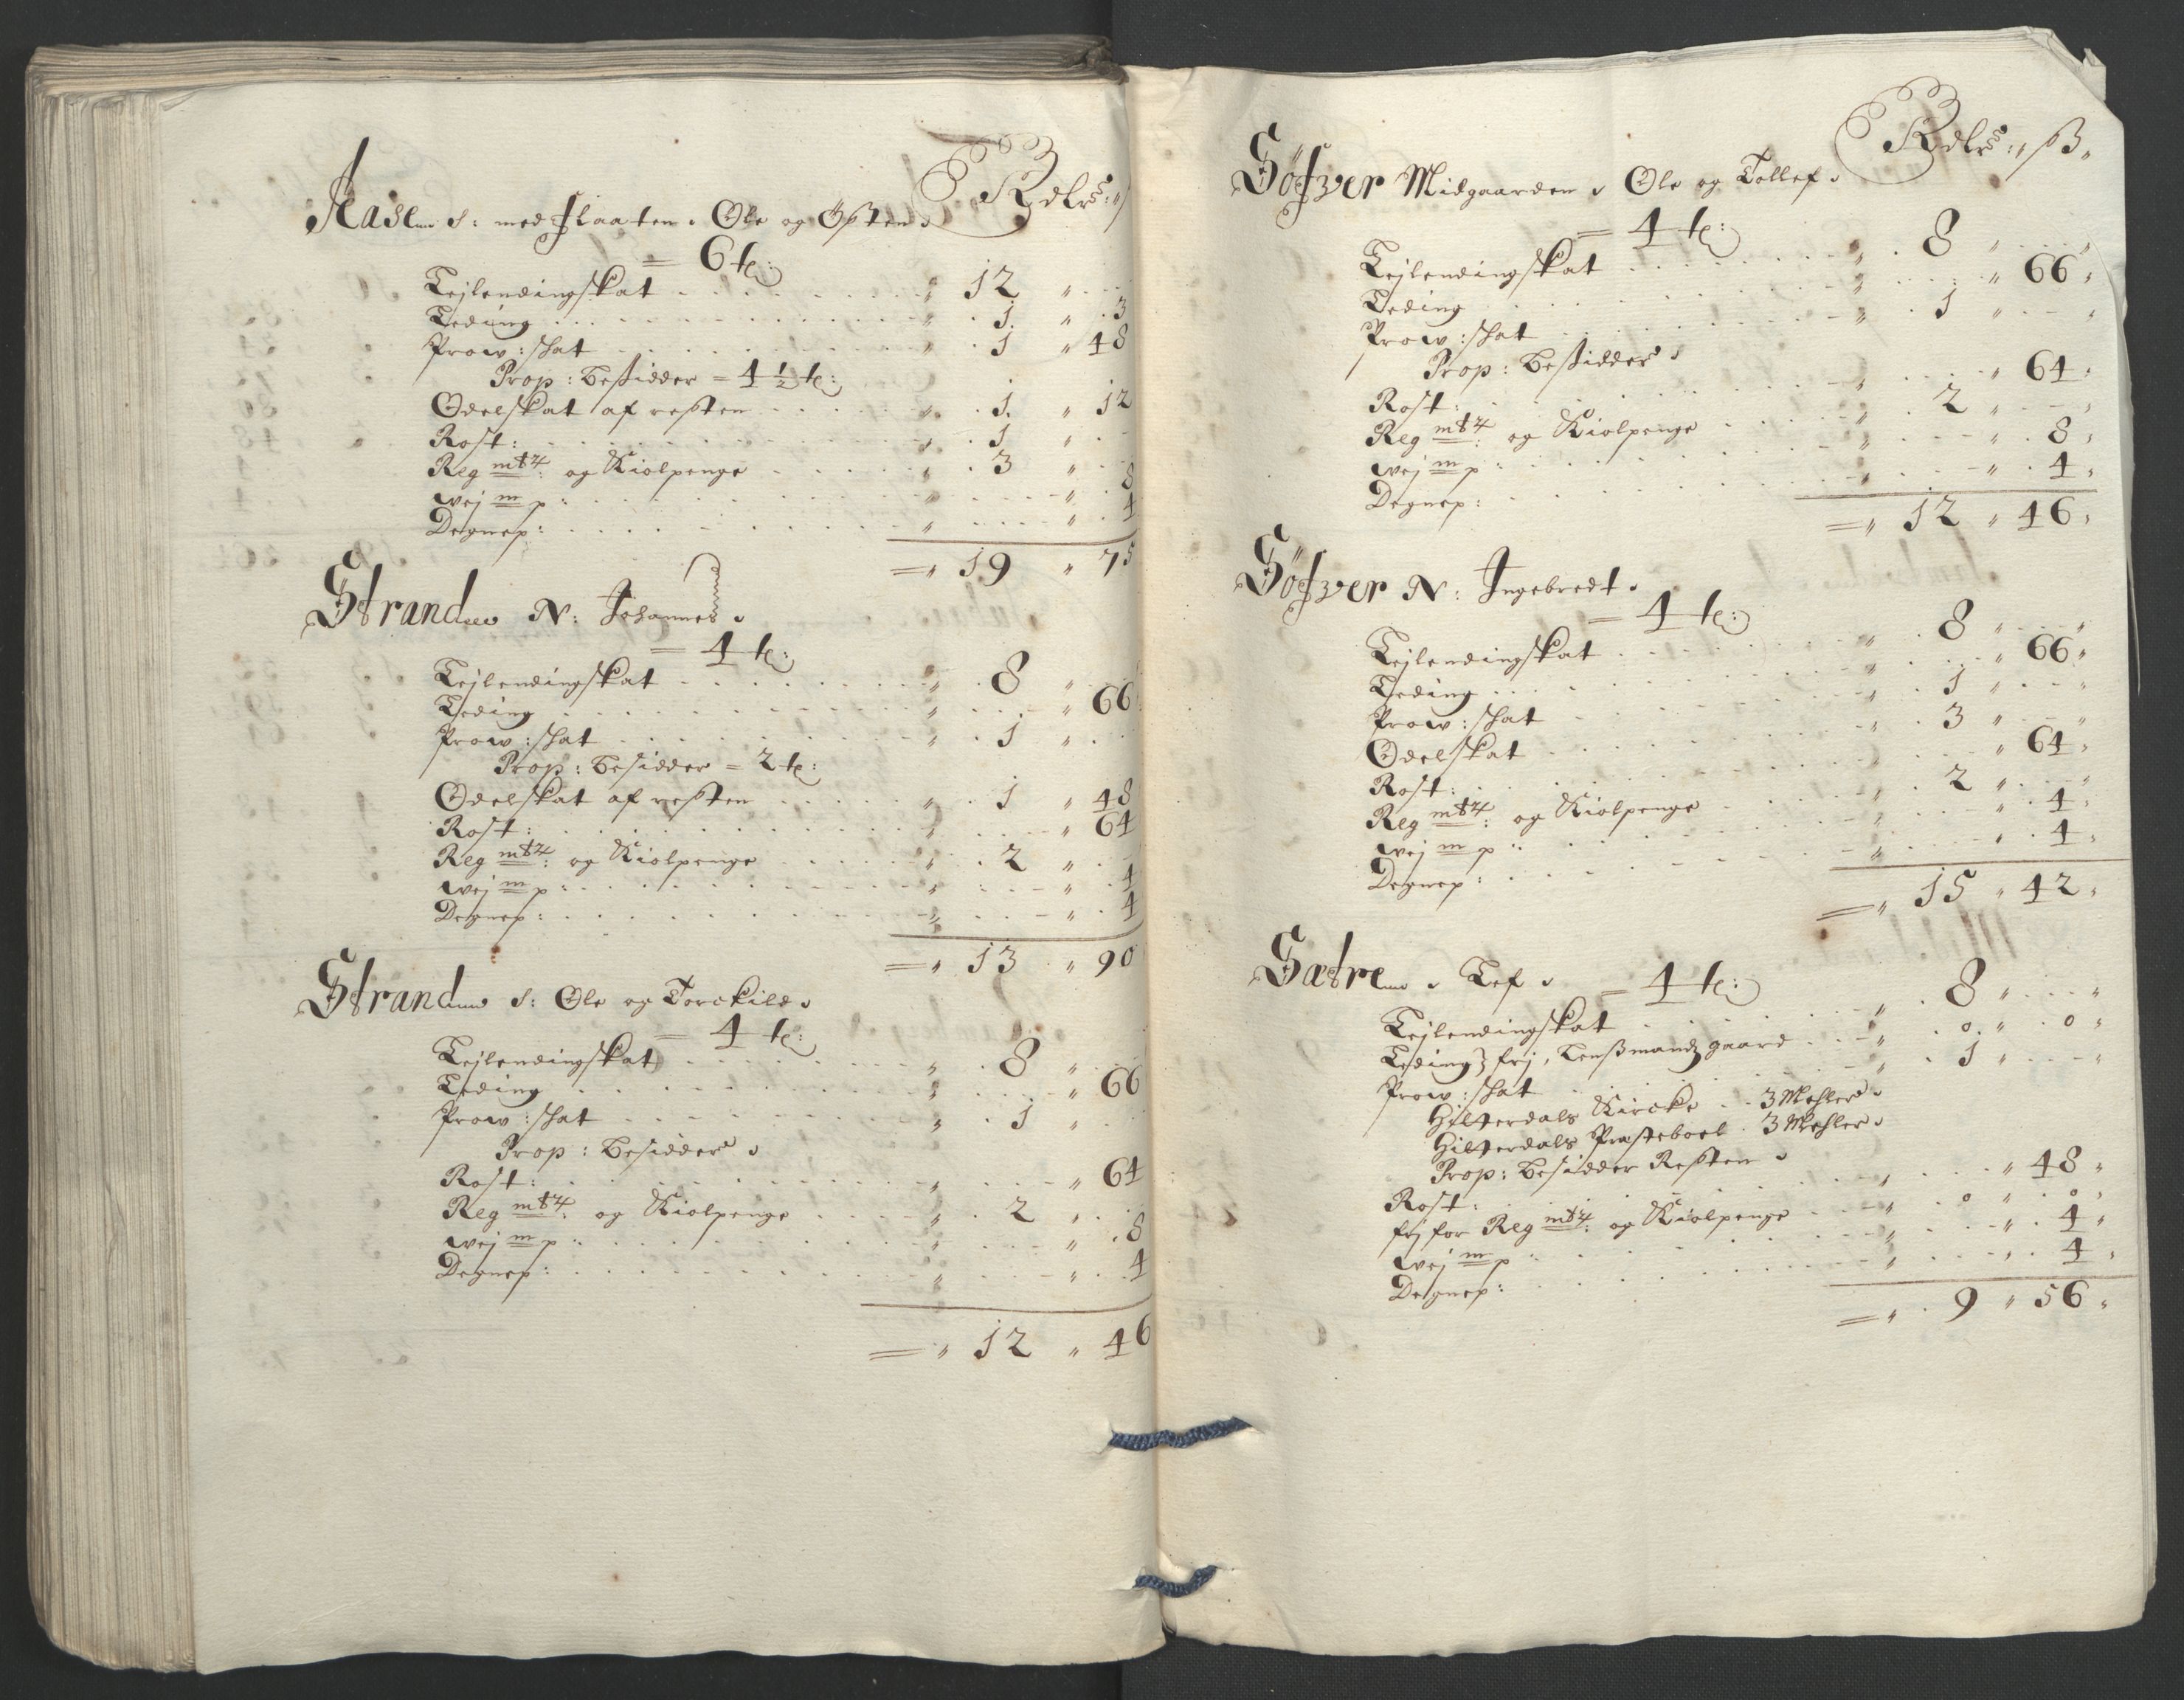 Rdlr: ß
Aase S: med Flaaten. Ole og Østen
= 6 t:
Leilendingskat 12
Leding 1 3
Prow: skat 1 48
Prop: besidder = 4 1/2 t:
Odelskat af resten 1 12
Rost: 1
Reg mt4: og Kiolpenge 3
wej m p: 8
Degnep: 4
= 19 75
Strand N: Johannes
= 4 t:
Leilendingskat 8
Leding 66
Prow: skat 1
Prop: besidder = 2 t:
Odelskat af resten 1 48
Rost: 64
Reg mt4: og Kiolpenge 2
wej m p: 4
Degnep: 4
= 13 90
Strand S: Ole og Torckild
= 4 t:
Leilendingskat 8
Leding 66
Prow: skat 1
Prop: besidder
Rost: 64
Reg mt4: og Kiolpenge 2
wej m p: 8
Degnep: 4
= 12 46
Rdlr: ß
Søfver Midgaarden Ole og Tollef
= 4 t:
Leilendingskat 8
Leding 66
Prow: skat 1
Prop: besidder
Rost: 64
Reg mt4: og Kiolpenge 2
wej m p: 8
Degnep: 4
= 12 46
Søfver N: Ingebredt
= 4 t:
Leilendingskat 8
Leding 66
Prow: skat 1
Odelskat 3
Rost: 64
Reg mt4: og Kiolpenge 2
wej m p: 4
Degnep: 4
= 15 42
Sætre Lef = 4 t:
Leilendingskat 8
Leding frj, Lensmandz gaard 0 0
Prow: skat 1
Hitterdals Kircke 3 Mehler
Hitterdals Præsteboel 3 Mehler
Prop: besidder Resten
Rost: 48
frj for Reg mt4: og Kiolpenge 0 0
wej m p 4
Degnep: 4
= 9 56